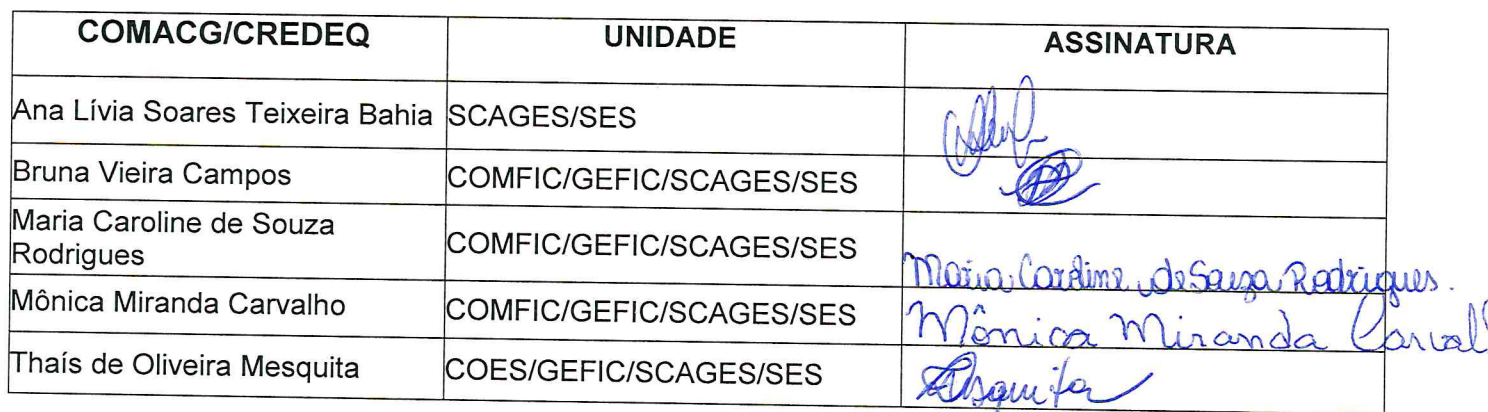 COMACG/CREDEQ UNIDADE ASSINATURA
Ana Lívia Soares Teixeira Bahia SCAGES/SES
Bruna Vieira Campos COMFIC/GEFIC/SCAGES/SES
Maria Caroline de Souza
Rodrigues COMFIC/GEFIC/SCAGES/SES Maria Caroline de Souza Rodrigues.
Mônica Miranda Carvalho COMFIC/GEFIC/SCAGES/SES Mônica Miranda Carval
Thaís de Oliveira Mesquita COES/GEFIC/SCAGES/SES